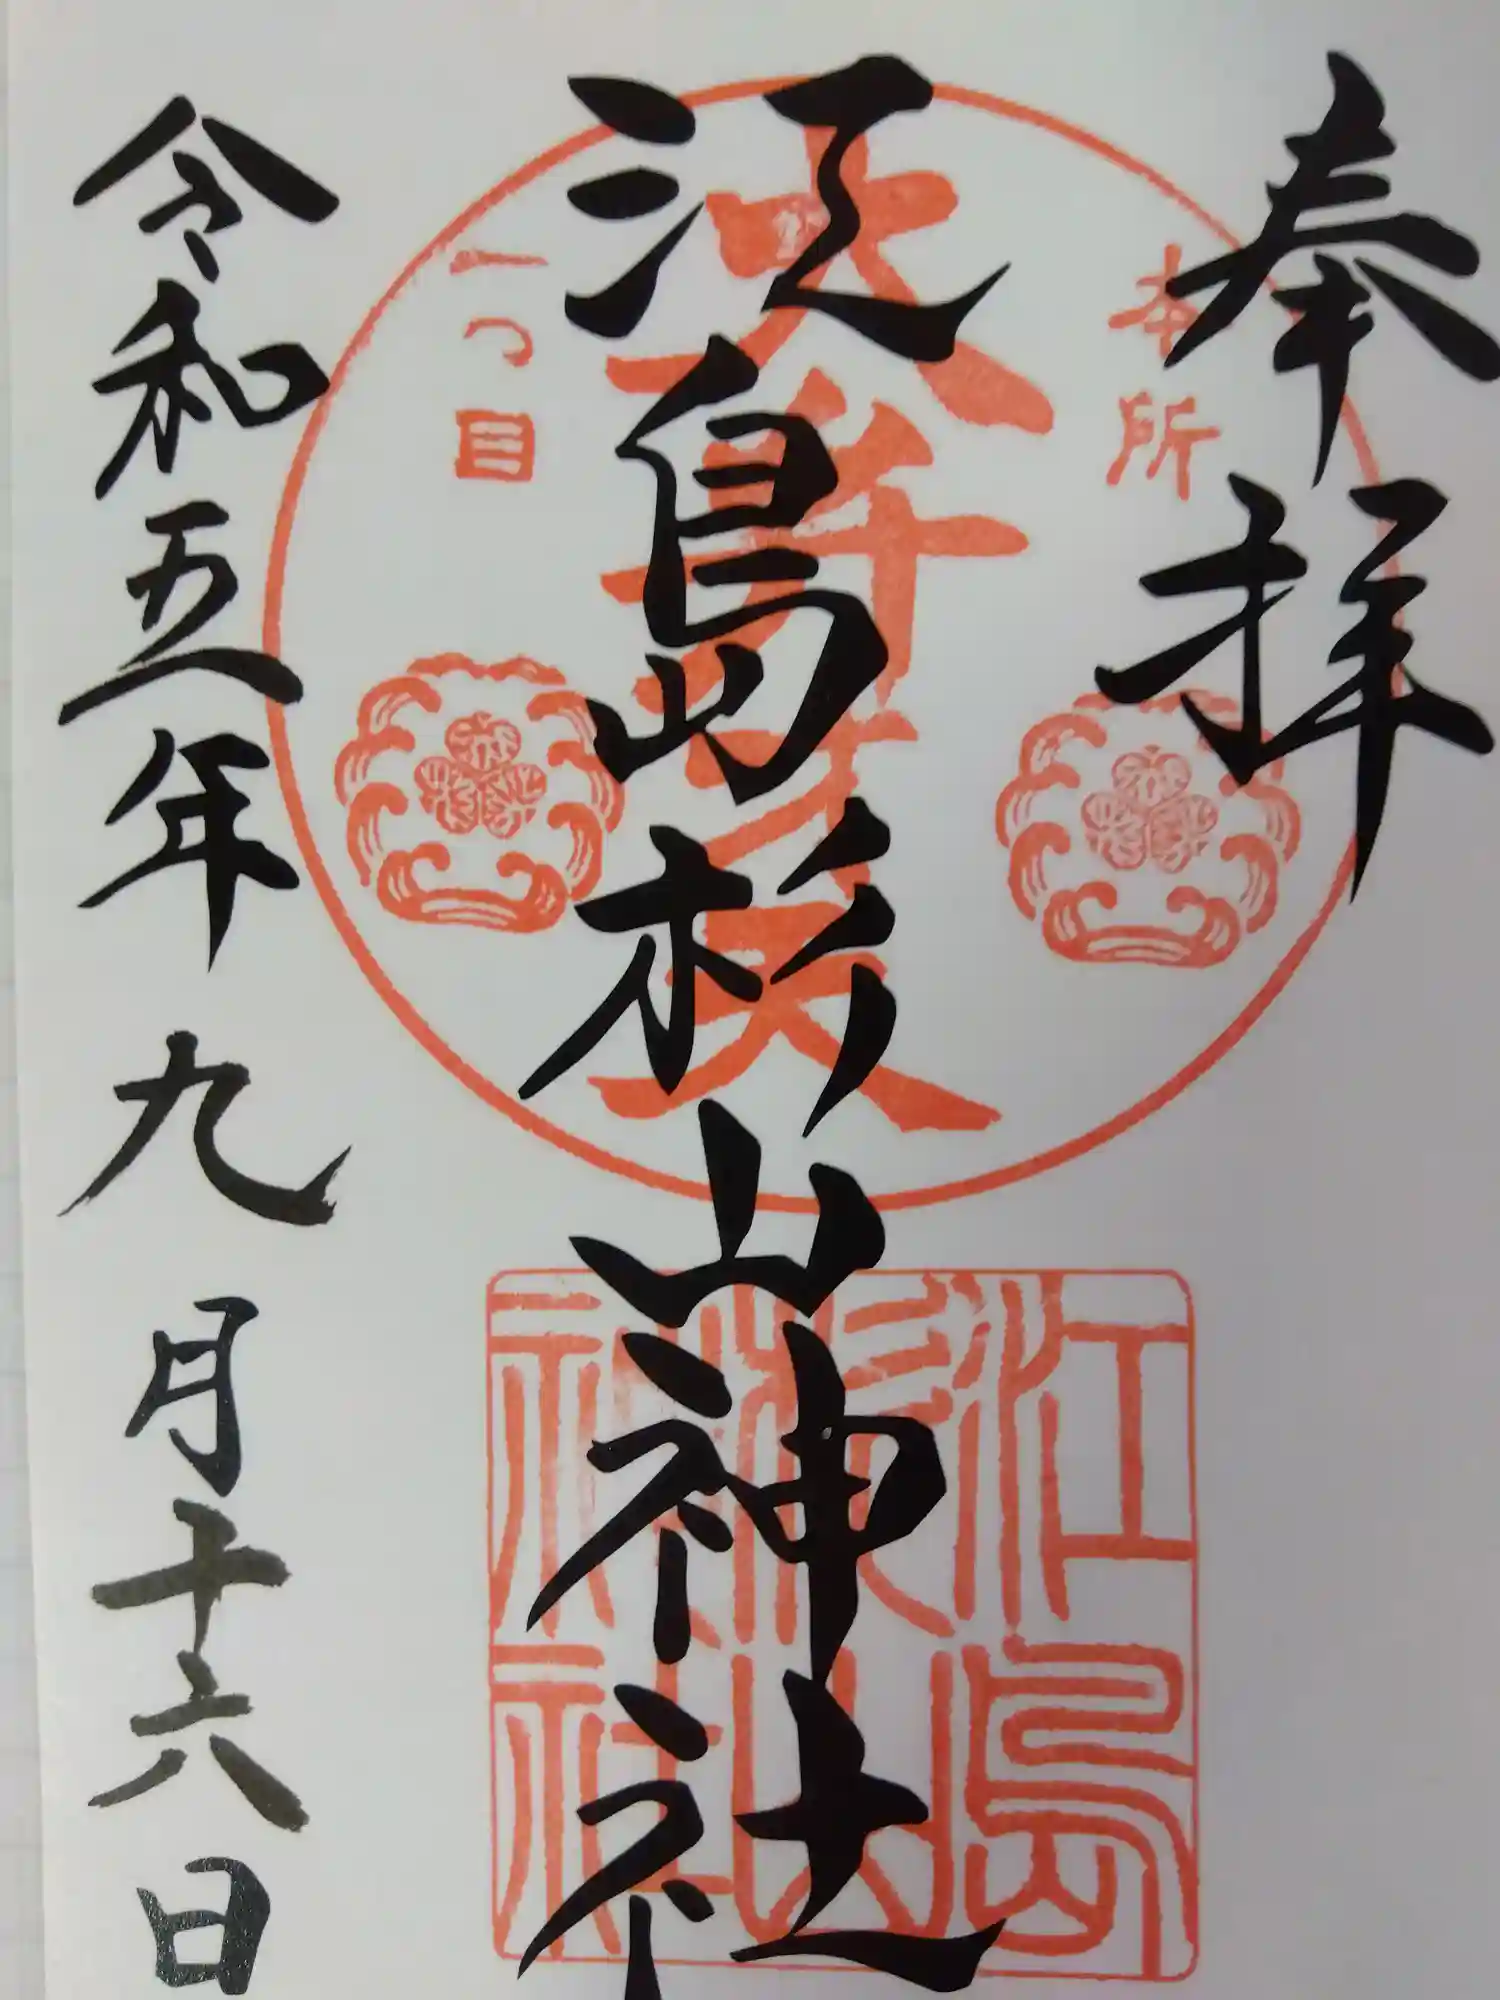 奉拝
本所
江島杉山神社
大弁才天
一つ目
江島杉山神社
令和五年九月十六日